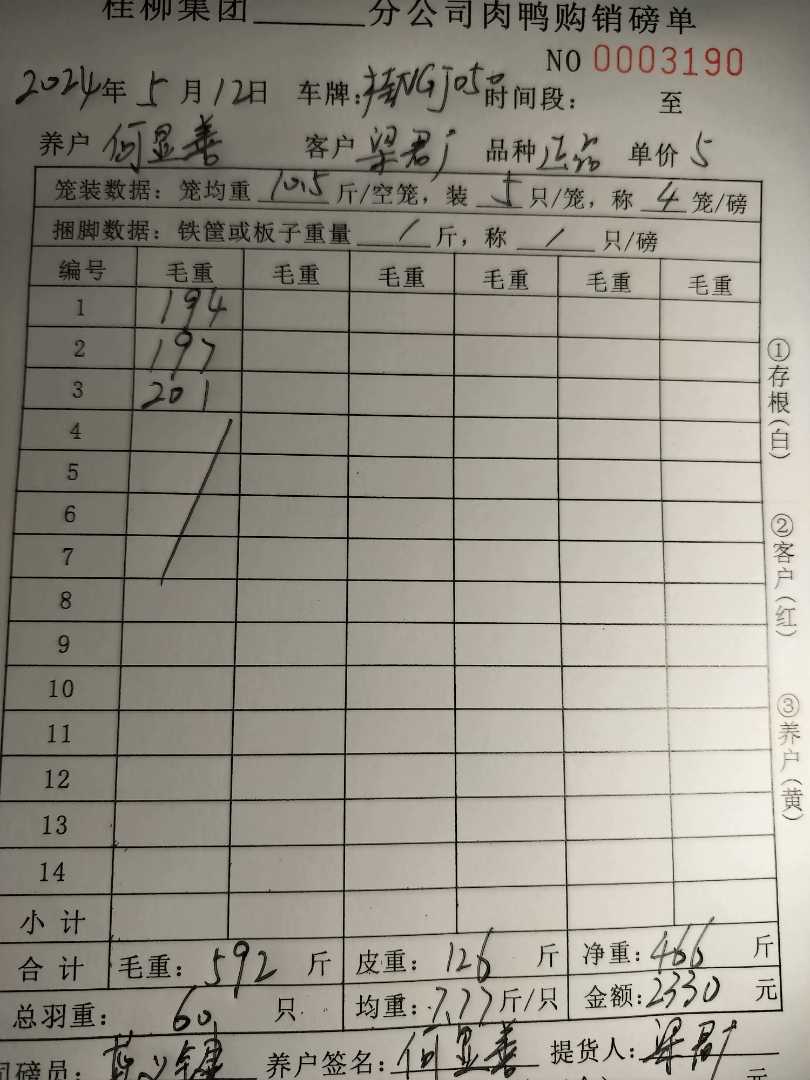 桂柳集团______分公司肉鸭购销磅单
NO 0003190
2024年 5月12日 车牌:桂NGJ050 时间段: 至
养户 何显善 客户 梁君广 品种 正品 单价 5
笼装数据: 笼均重 10.5 斤/空笼, 装 5 只/笼, 称 4 笼/磅
捆脚数据: 铁筐或板子重量 / 斤, 称 / 只/磅
编号 毛重 毛重 毛重 毛重 毛重 毛重
1 194
2 197
3 201
4
5
6
7
8
9
10
11
12
13
14
小计
合计 毛重: 592 斤 皮重: 126 斤 净重: 466 斤
总羽重: 60 只 均重: 7.77 斤/只 金额: 2330 元
司磅员: 养户签名: 何显善 提货人: 梁君广
元
①存根(白)
②客户(红)
③养户(黄)